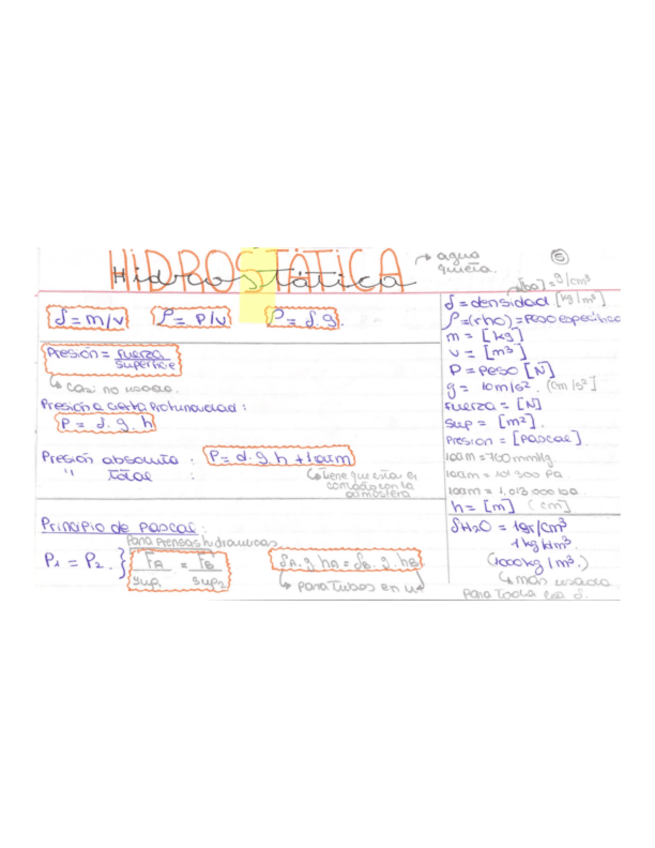 HIDROSTÁTICA
Hidrostática
→ agua
quieta.
6
[ba] = g/cm³
δ = m/v
ρ = P/v
ρ = δ.g.
Presión = fuerza
superficie
↳ casi no usada.
Presión a cierta Profundidad:
P = d.g.h
Presión absoluta : P = d.g.h + 1atm
" total :
↳ tiene que estar en
contacto con la
atmósfera
Principio de pascal:
Para Prensas hidraulicas
P₁ = P₂ . } FA = FB
Sup₁ Sup₂
δA.g.hA = δB.g.hB
↳ para Tubos en U
δ = densidad [kg/m³]
ρ = (rho) = Peso especifico
m = [kg]
v = [m³]
P = Peso [N]
g = 10m/s² . (cm/s²]
Fuerza = [N]
Sup = [m²].
Presion = [pascal]
1atm = 760 mmHg.
1atm = 101 300 Pa.
1atm = 1.013 000 ba.
h = [m] (cm]
δH₂O = 1gr/cm³
1 kg/dm³.
(1000 kg/m³.)
↳ más usada
para toda la δ.